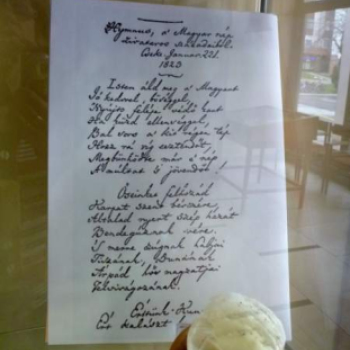 Hymnus, a' Magyar nép
zivataros századaiból.
Cseke, Január. 22d.
1823
Isten áldd meg a Magyart
Jó kedvvel, bőséggel,
Nyújts feléje védő kart
Ha küzd ellenséggel,
Bal sors a' kit régen tép
Hozz rá víg esztendőt,
Megbűnhődte már e' nép
A' múltat 's jövendőt!
Őseinket felhozád
Kárpát szent bérczére,
Általad nyert szép hazát
Bendegúznak vére.
'S merre zúgnak habjai
Tiszának, Dunának,
Árpád hős magzatjai
Felvirágozának.
Értünk Kun
Ért kalászt